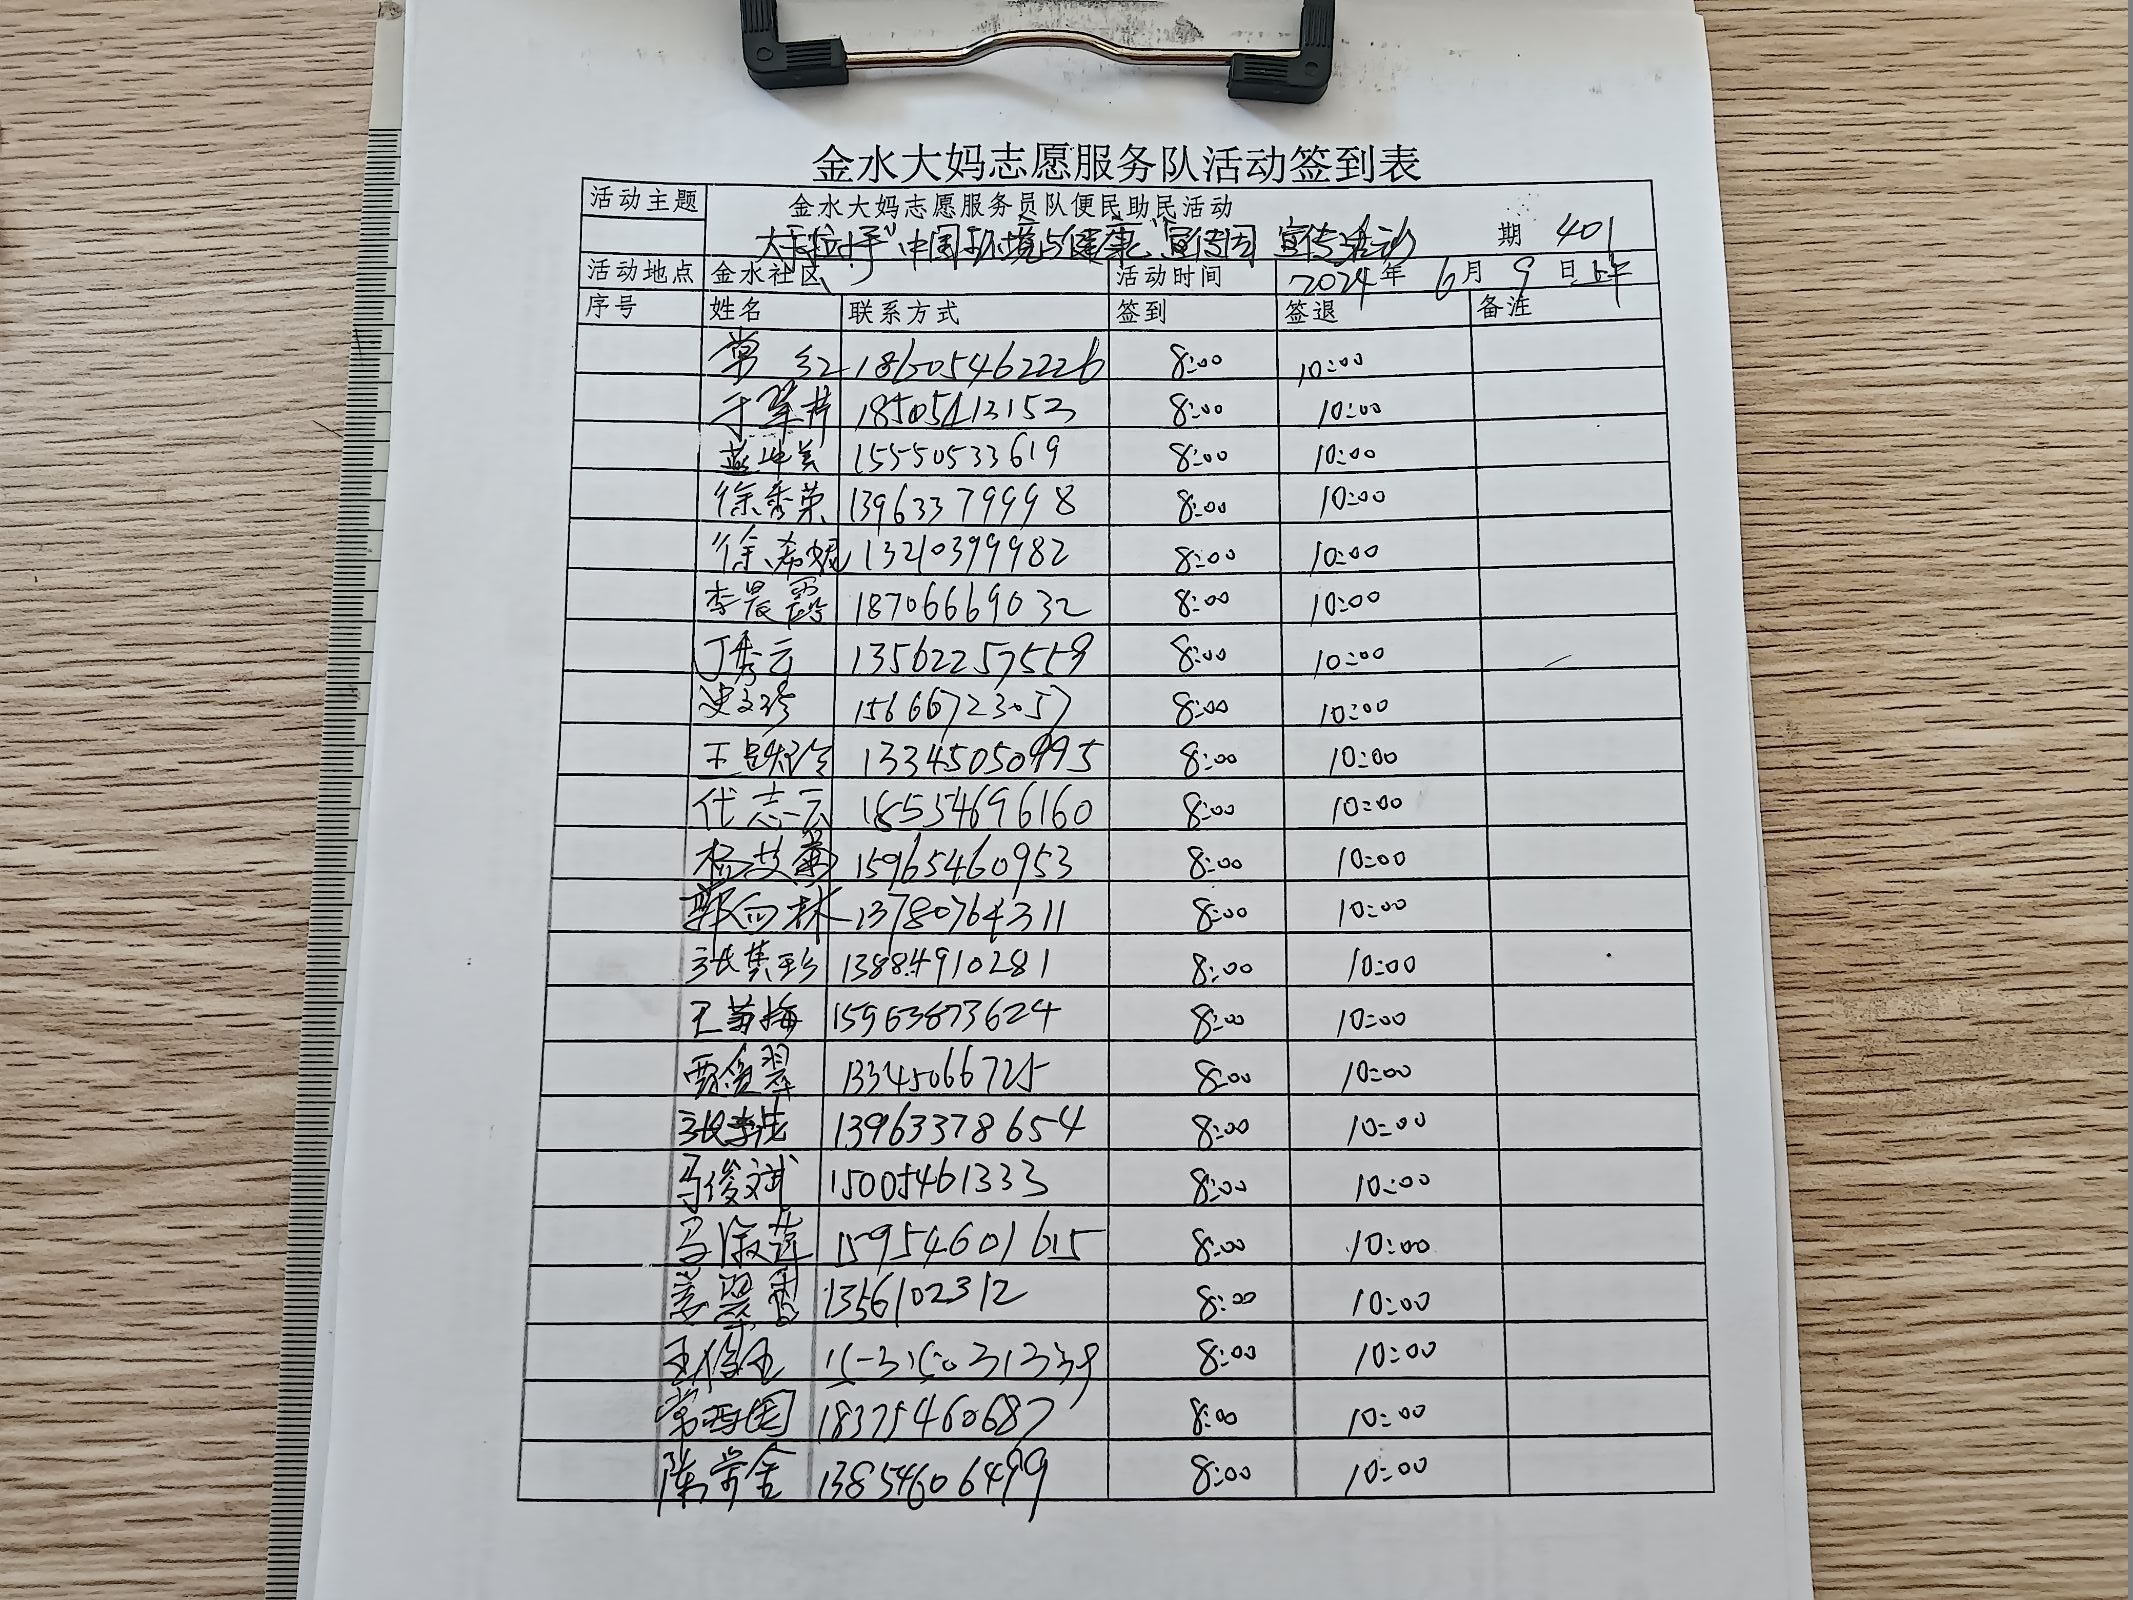 金水大妈志愿服务队活动签到表
活动主题 金水大妈志愿服务员队便民助民活动
"中国环境与健康"宣传团 宣传活动 期 401
活动地点 金水社区 活动时间 2024年 6月 9日上午
序号 姓名 联系方式 签到 签退 备注
常红 18605462226 8:00 10:00
18505413153 8:00 10:00
15550533619 8:00 10:00
徐秀荣 13963379998 8:00 10:00
徐希娥 13210399982 8:00 10:00
李晨霞 18706669032 8:00 10:00
丁秀云 13562257559 8:00 10:00
史文珍 15666723057 8:00 10:00
13345050995 8:00 10:00
代志云 18554696160 8:00 10:00
杨艾菊 15965460953 8:00 10:00
郭向林 13780764311 8:00 10:00
张其珍 13884910281 8:00 10:00
王苗梅 15963873624 8:00 10:00
贾俊翠 13345066725 8:00 10:00
张 13963378654 8:00 10:00
马俊斌 15005461333 8:00 10:00
马淑莲 15954601615 8:00 10:00
姜翠香 1356102312 8:00 10:00
8:00 10:00
常西国 18375460687 8:00 10:00
陈学金 13854606499 8:00 10:00